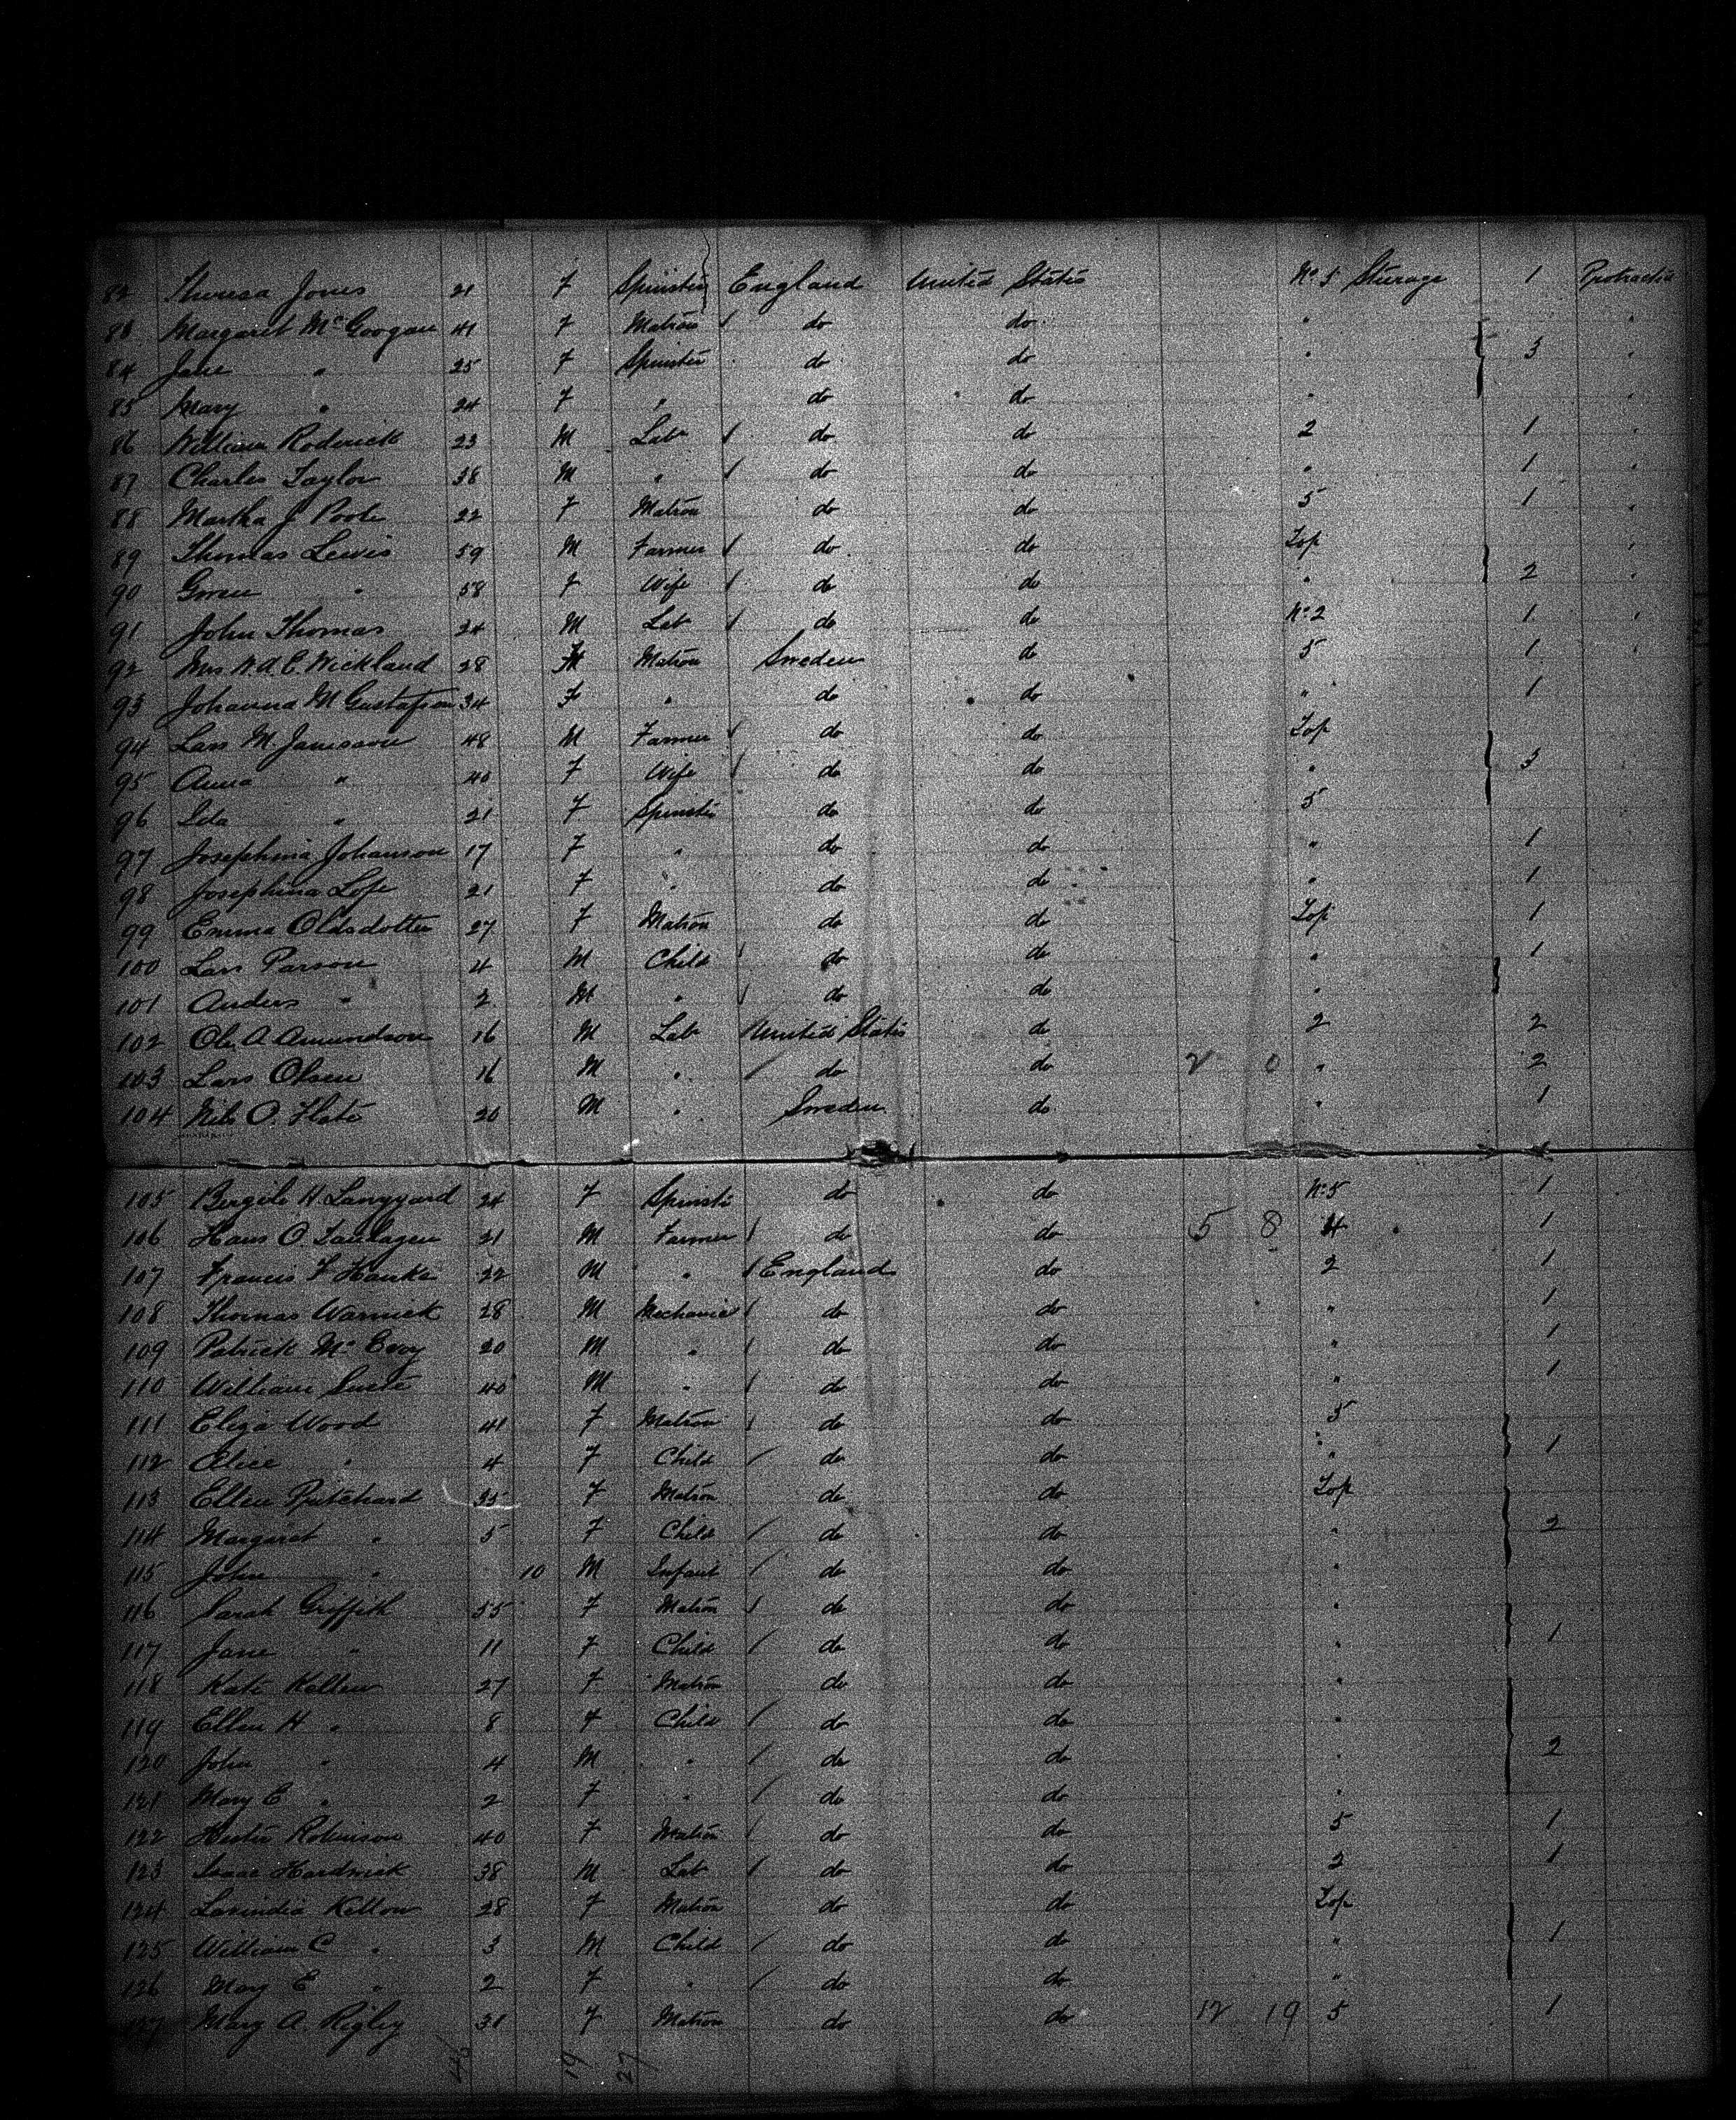 82 Theresa Jones 21 F Spinster England United States No 5 Steerage 1 Protracted
83 Margaret McGoogan 41 F Matron do do " "
84 Jane " 25 F Spinster do do " 3 "
85 Mary " 24 F " do do " "
86 William Roderick 23 M Lab do do 2 1 "
87 Charles Taylor 38 M " do do " 1 "
88 Martha J Poole 22 F Matron do do 5 1 "
89 Thomas Lewis 59 M Farmer do do Top "
90 " 58 F Wife do do " 2 "
91 John Thomas 24 M Lab do do No 2 1 "
92 Mrs N.A.E. Wickland 28 F Matron Sweden do 5 1 "
93 Johanna M Gustafson 34 F " do do " 1
94 Lars M. Jansson 48 M Farmer do do Top
95 Anna " 40 F Wife do do " 3
96 " 21 F Spinster do do 5
97 Josephina Johanson 17 F " do do " 1
98 Josephina 21 F " do do " 1
99 Emma Olasdotter 27 F Matron do do Top 1
100 Lars Parson 4 M Child do do " 1
101 Anders " 2 M " do do "
102 Ole A Amundson 16 M Lab United States do 2 2
103 Lars Olsen 16 M " do do 2 0 " 2
104 Nils O. 20 M " Sweden do " 1
105 H. Langgard 24 F Spinster do do No 5 1
106 Hans O. 21 M Farmer do do 5 8 4 1
107 Francis F 22 M " England do 2 1
108 Thomas Warnick 28 M Mechanic do do " 1
109 Patrick McEvoy 20 M " do do " 1
110 William 40 M " do do " 1
111 Eliza Wood 41 F Matron do do 5
112 Alice " 4 F Child do do " 1
113 Ellen Pritchard 35 F Matron do do Top
114 Margaret " 5 F Child do do " 2
115 John " 10 M Infant do do "
116 Sarah Griffith 55 F Matron do do "
117 Jane " 11 F Child do do " 1
118 Kate 27 F Matron do do "
119 Ellen H " 8 F Child do do "
120 John " 4 M " do do " 2
121 Mary E " 2 F " do do "
122 Hester Robinson 40 F Matron do do 5 1
123 Isaac Hardwick 38 M Lab do do 2 1
124 Lavindia Kellow 28 F Matron do do Top
125 William C " 3 M Child do do " 1
126 Mary E " 2 F " do do "
127 Mary A. Rigby 31 F Matron do do 12 19 5 1
19 27